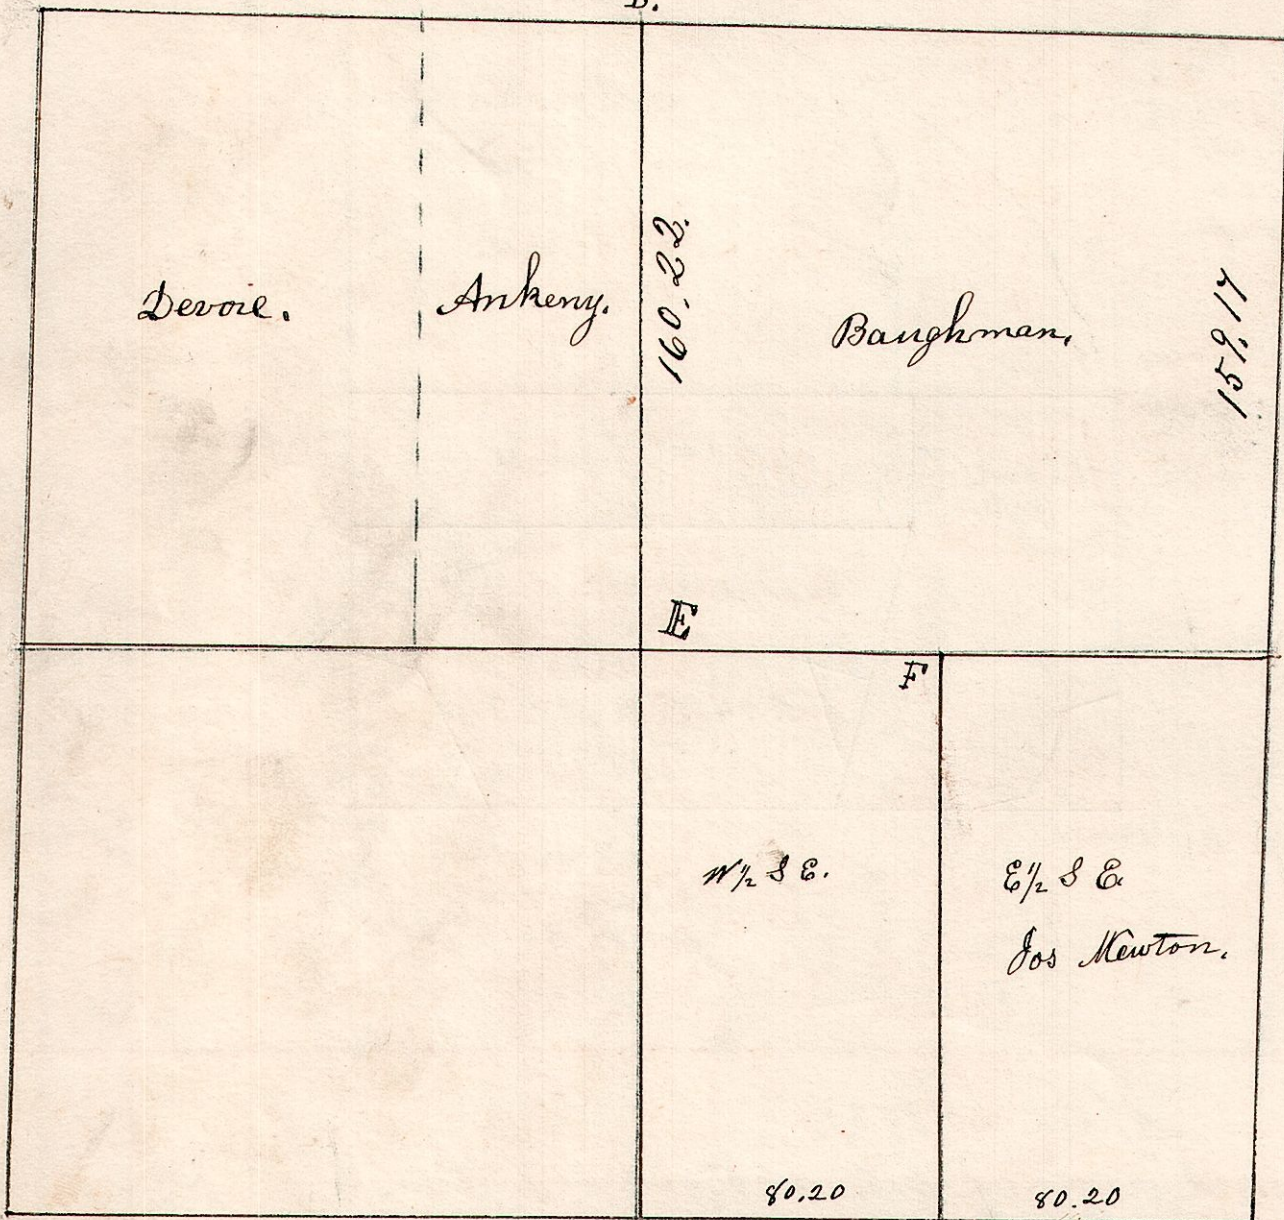 B.
Devore.
Ankeny.
160.22.
Baughman.
159.17
E
F
W 1/2 S E.
E 1/2 S E.
Jos Newton.
80.20
80.20